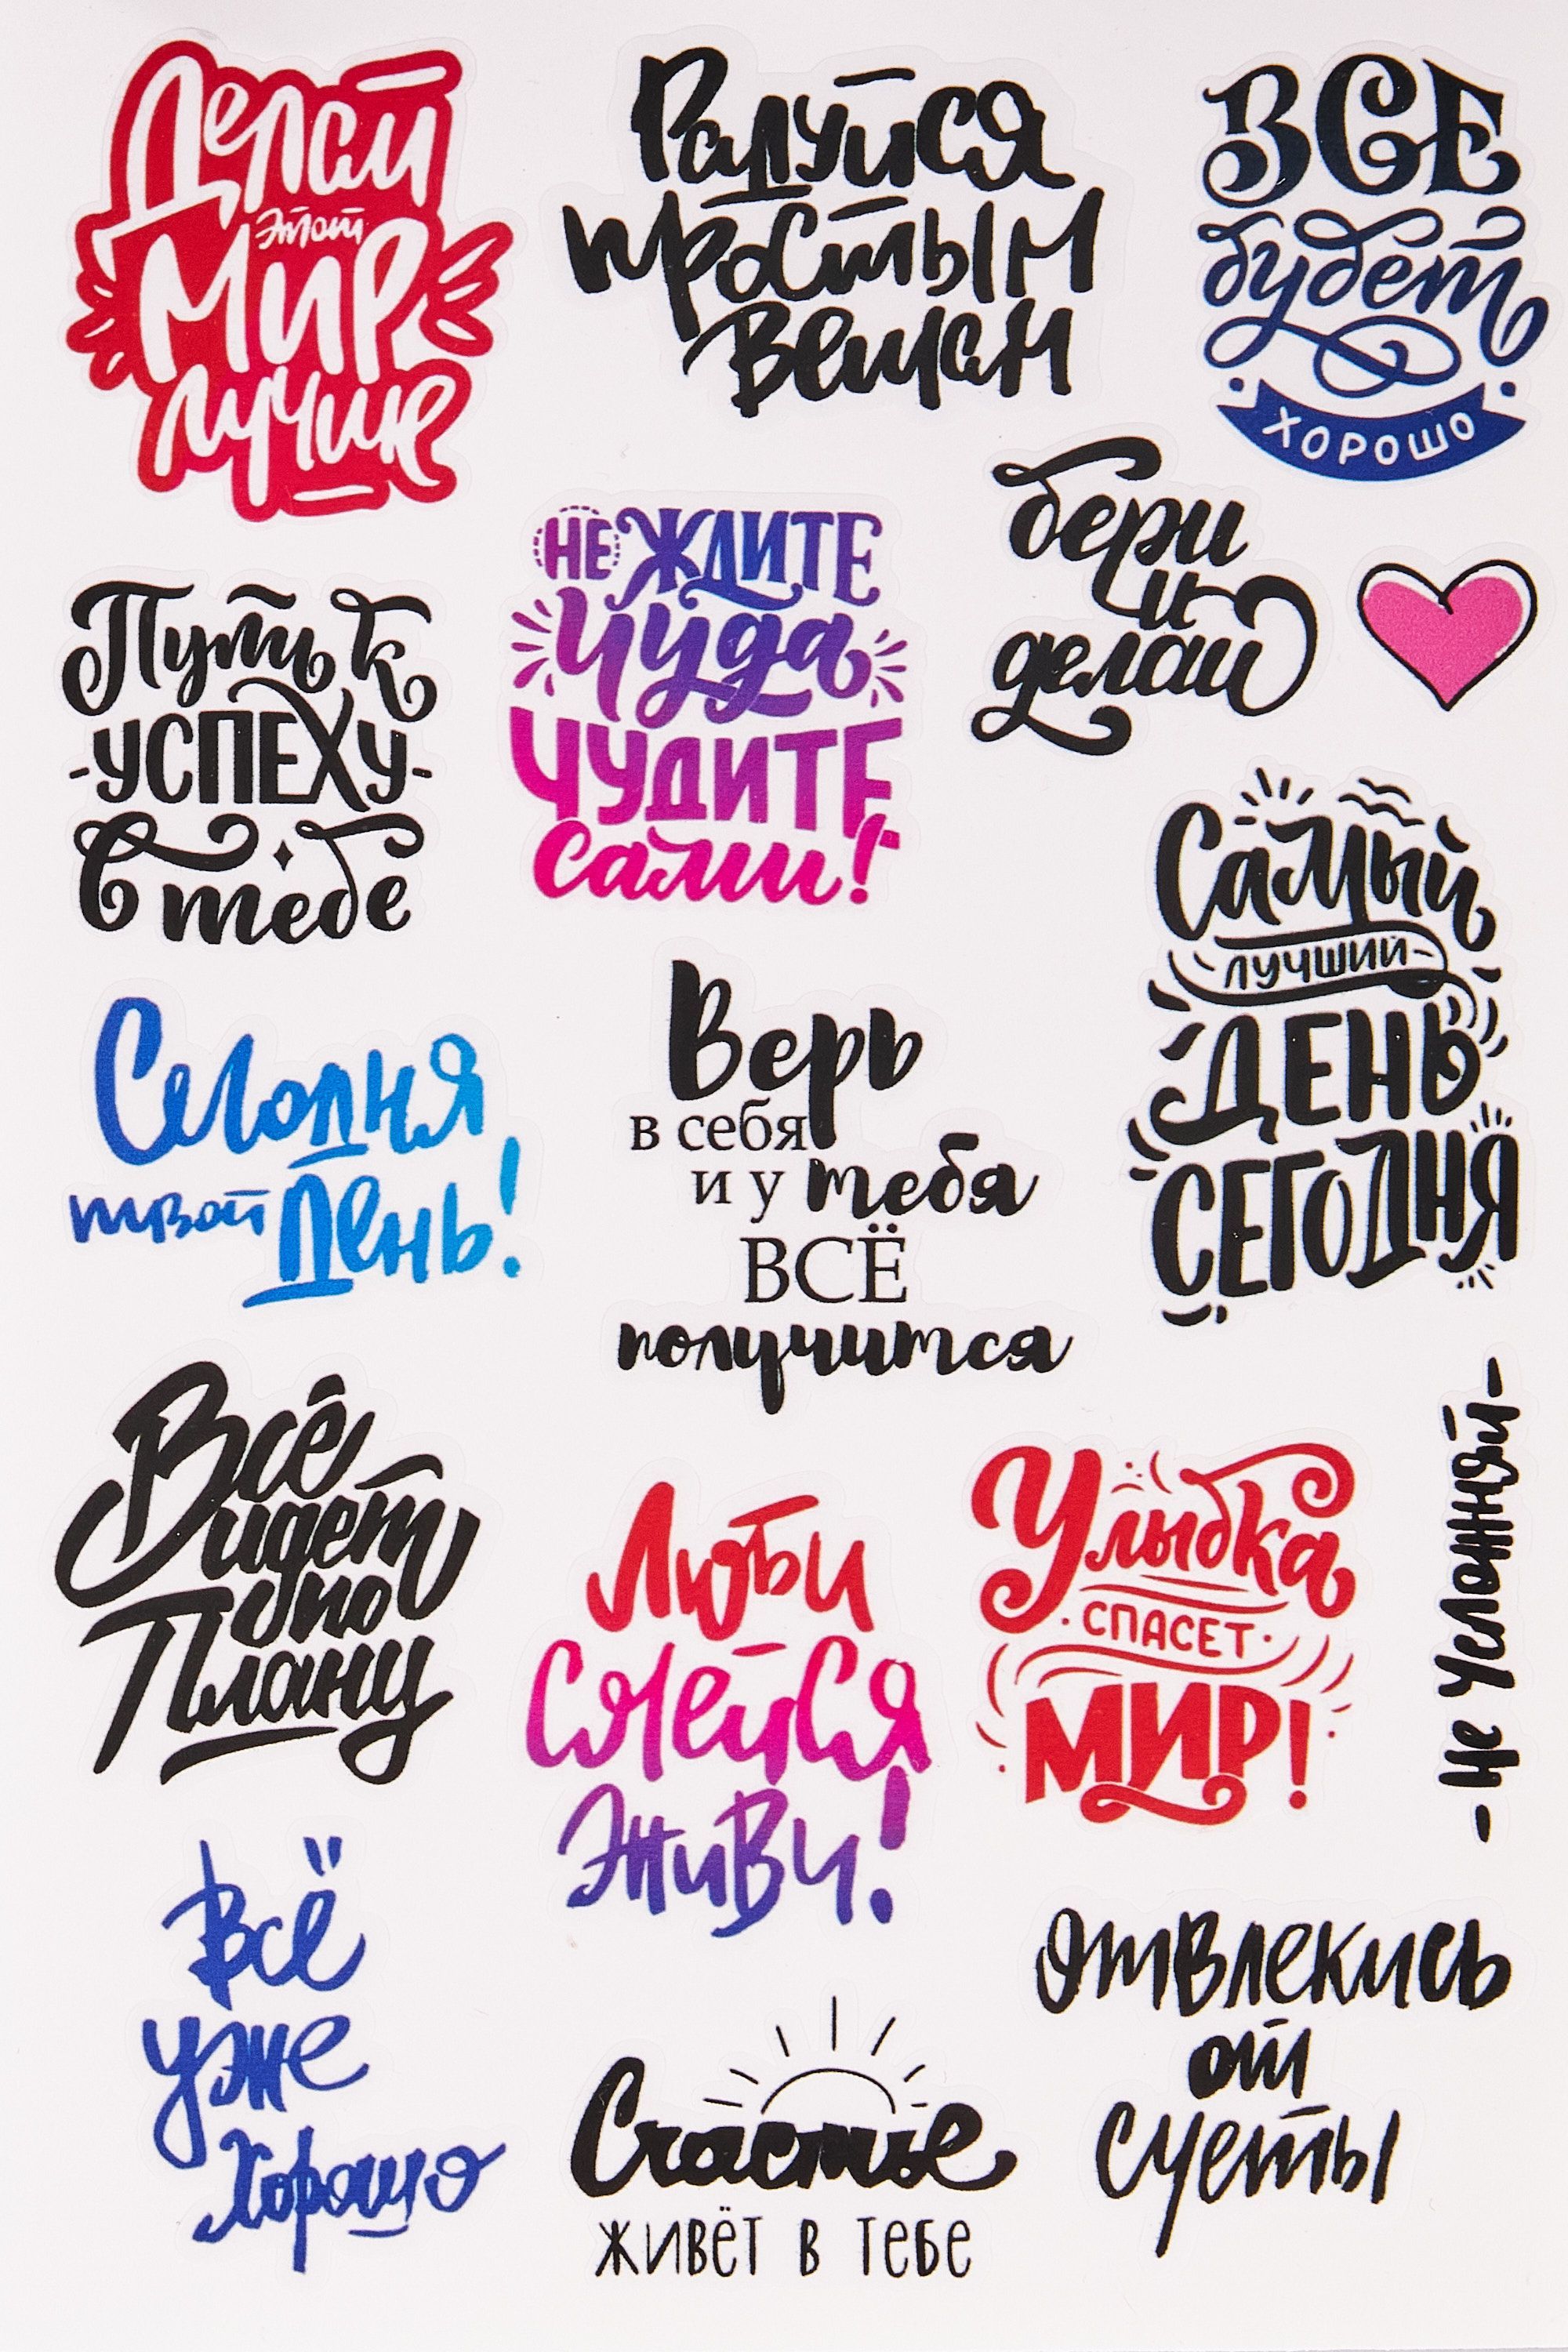 Делай
этот
Мир
лучше
Радуйся
простым
вещам
ВСЕ
будет
ХОРОШО
бери
и
делай
Путь к
-УСПЕХУ-
в тебе
НЕ ЖДИТЕ
Чуда
ЧУДИТЕ
сами!
Самый
ЛУЧШИЙ
ДЕНЬ
СЕГОДНЯ
Сегодня
твой День!
Верь
в себя
и у тебя
ВСЁ
получится
Всё
идет
по
Плану
Люби
Смейся
Живи!
Улыбка
СПАСЕТ
МИР!
- Не Усложняй -
Всё
уже
Хорошо
Счастье
живёт в тебе
Отвлекись
от
суеты